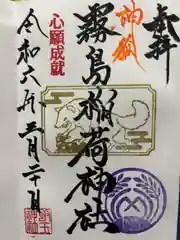 奉拝
神狐
霧島稲荷神社
心願成就
令和六年三月二十日